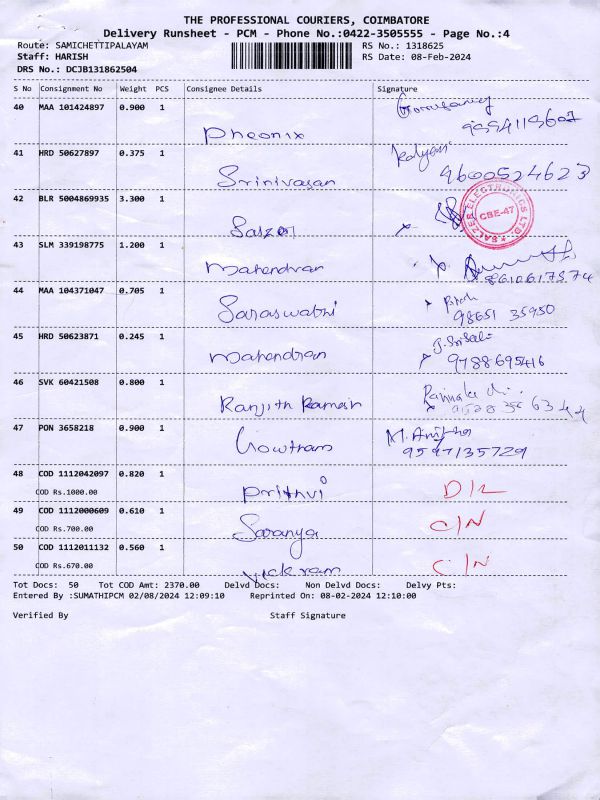 THE PROFESSIONAL COURIERS, COIMBATORE
Delivery Runsheet - PCM - Phone No.:0422-3505555 - Page No.:4
Route: SAMICHETTIPALAYAM RS No.: 1318625
Staff: HARISH RS Date: 08-Feb-2024
DRS No.: DCJB131862504
S No Consignment No Weight PCS Consignee Details Signature
40 MAA 101424897 0.900 1
Pheonix
41 HRD 50627897 0.375 1 Kalyani
Srinivasan 9600524623
42 BLR 5004869935 3.300 1
SALZER ELECTRONICS LTD. CBE-47
43 SLM 339198775 1.200 1
Mahendran
44 MAA 104371047 0.705 1
Saraswathi 98651 35950
45 HRD 50623871 0.245 1
Mahendran 9788695416
46 SVK 60421508 0.800 1
Ranjith Ramesh
47 PON 3658218 0.900 1
Gowtham 9597135729
48 COD 1112042097 0.820 1
COD Rs.1000.00 Prithvi D/L
49 COD 1112000609 0.610 1
COD Rs.700.00 Saranya C/N
50 COD 1112011132 0.560 1
COD Rs.670.00 Vickram C/N
Tot Docs: 50 Tot COD Amt: 2370.00 Delvd Docs: Non Delvd Docs: Delvy Pts:
Entered By :SUMATHIPCM 02/08/2024 12:09:10 Reprinted On: 08-02-2024 12:10:00
Verified By Staff Signature